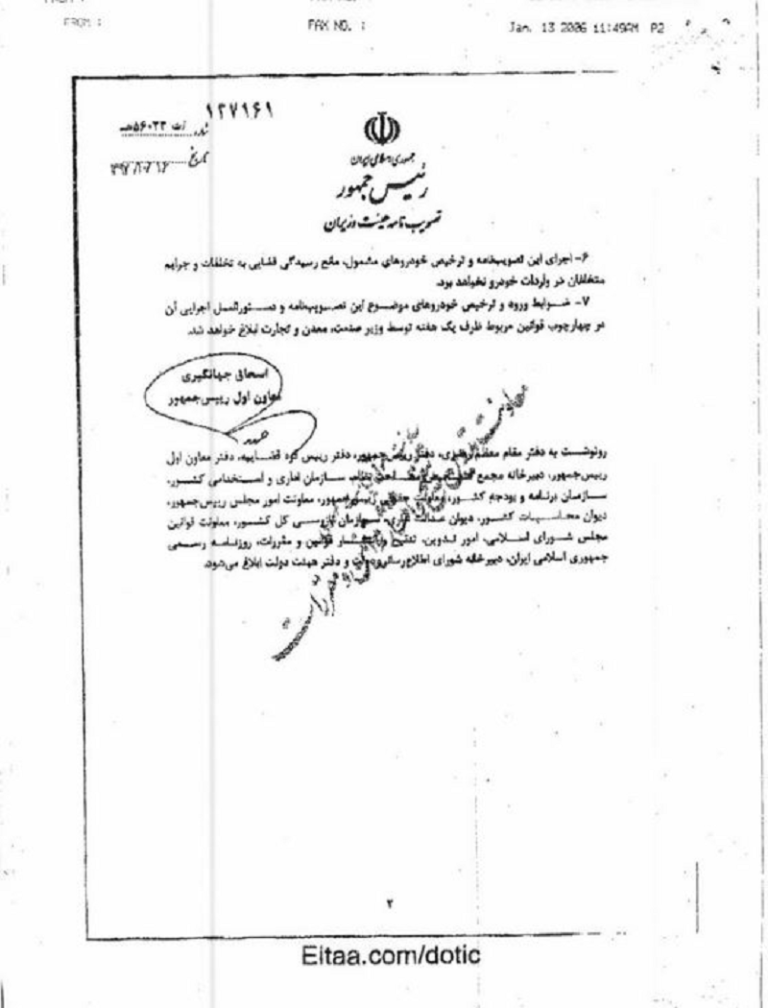 FROM :
FAX NO. :
Jan. 13 2006 11:49AM P2
۱۲۷۱۶۱
شماره ت ۵۶۰۲۲هـ
تاریخ
جمهوری اسلامی ایران
رئیس جمهور
تصویب نامه هیئت وزیران
۶- اجرای این تصویبنامه و ترخیص خودروهای مشمول، مانع رسیدگی قضایی به تخلفات و جرایم
متخلفان در واردات خودرو نخواهد بود.
۷- ضوابط ورود و ترخیص خودروهای موضوع این تصویبنامه و دستورالعمل اجرایی آن
در چهارچوب قوانین مربوط ظرف یک هفته توسط وزیر صنعت، معدن و تجارت ابلاغ خواهد شد.
اسحاق جهانگیری
معاون اول رییس‌جمهور
رونوشت به دفتر مقام معظم رهبری، دفتر رییس‌جمهور، دفتر رییس قوه قضاییه، دفتر معاون اول
رییس‌جمهور، دبیرخانه مجمع تشخیص مصلحت نظام، سازمان اداری و استخدامی کشور،
سازمان برنامه و بودجه کشور، معاونت حقوقی رییس‌جمهور، معاونت امور مجلس رییس‌جمهور،
دیوان محاسبات کشور، دیوان عدالت اداری، سازمان بازرسی کل کشور، معاونت قوانین
مجلس شورای اسلامی، امور تدوین، تنقیح و انتشار قوانین و مقررات، روزنامه رسمی
جمهوری اسلامی ایران، دبیرخانه شورای اطلاع‌رسانی دولت و دفتر هیئت دولت ابلاغ می‌شود.
۲
Eitaa.com/dotic